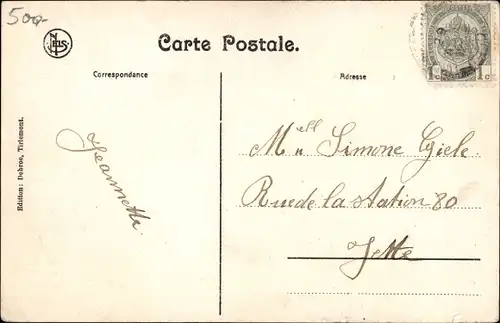 500-
Carte Postale.
Correspondance
Adresse
1c 1c
Edition: Debroe, Tirlemont.
Jeannette.
Mlle Simone Giele
Rue de la station 80
Jette